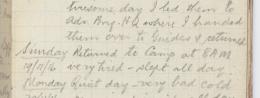 tiresome day I led them to
Adv. Brig. H Q where I handed
them over to Guides & returned
Sunday Returned to Camp at 8 AM
19/11/16 very tired - slept all day.
Monday Quiet day - very bad cold